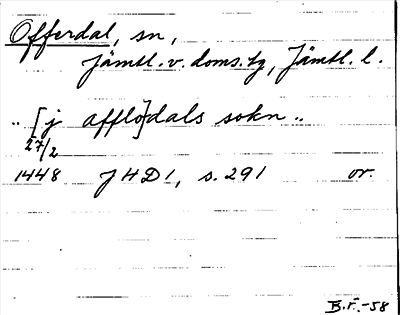 Offerdal, sn,
Jämtl. v. doms. tg, Jämtl. l.
.. [j afflö]dals sokn ..
27/2
1448 JHD 1, s. 291 or.
B.F.-58